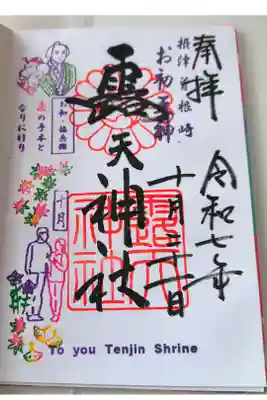 奉拝
摂津・曽根崎・
お初天神
露天神社
令和七年
十月
お初・徳兵衛
恋の手本と
なりにけり
十月
To you Tenjin Shrine